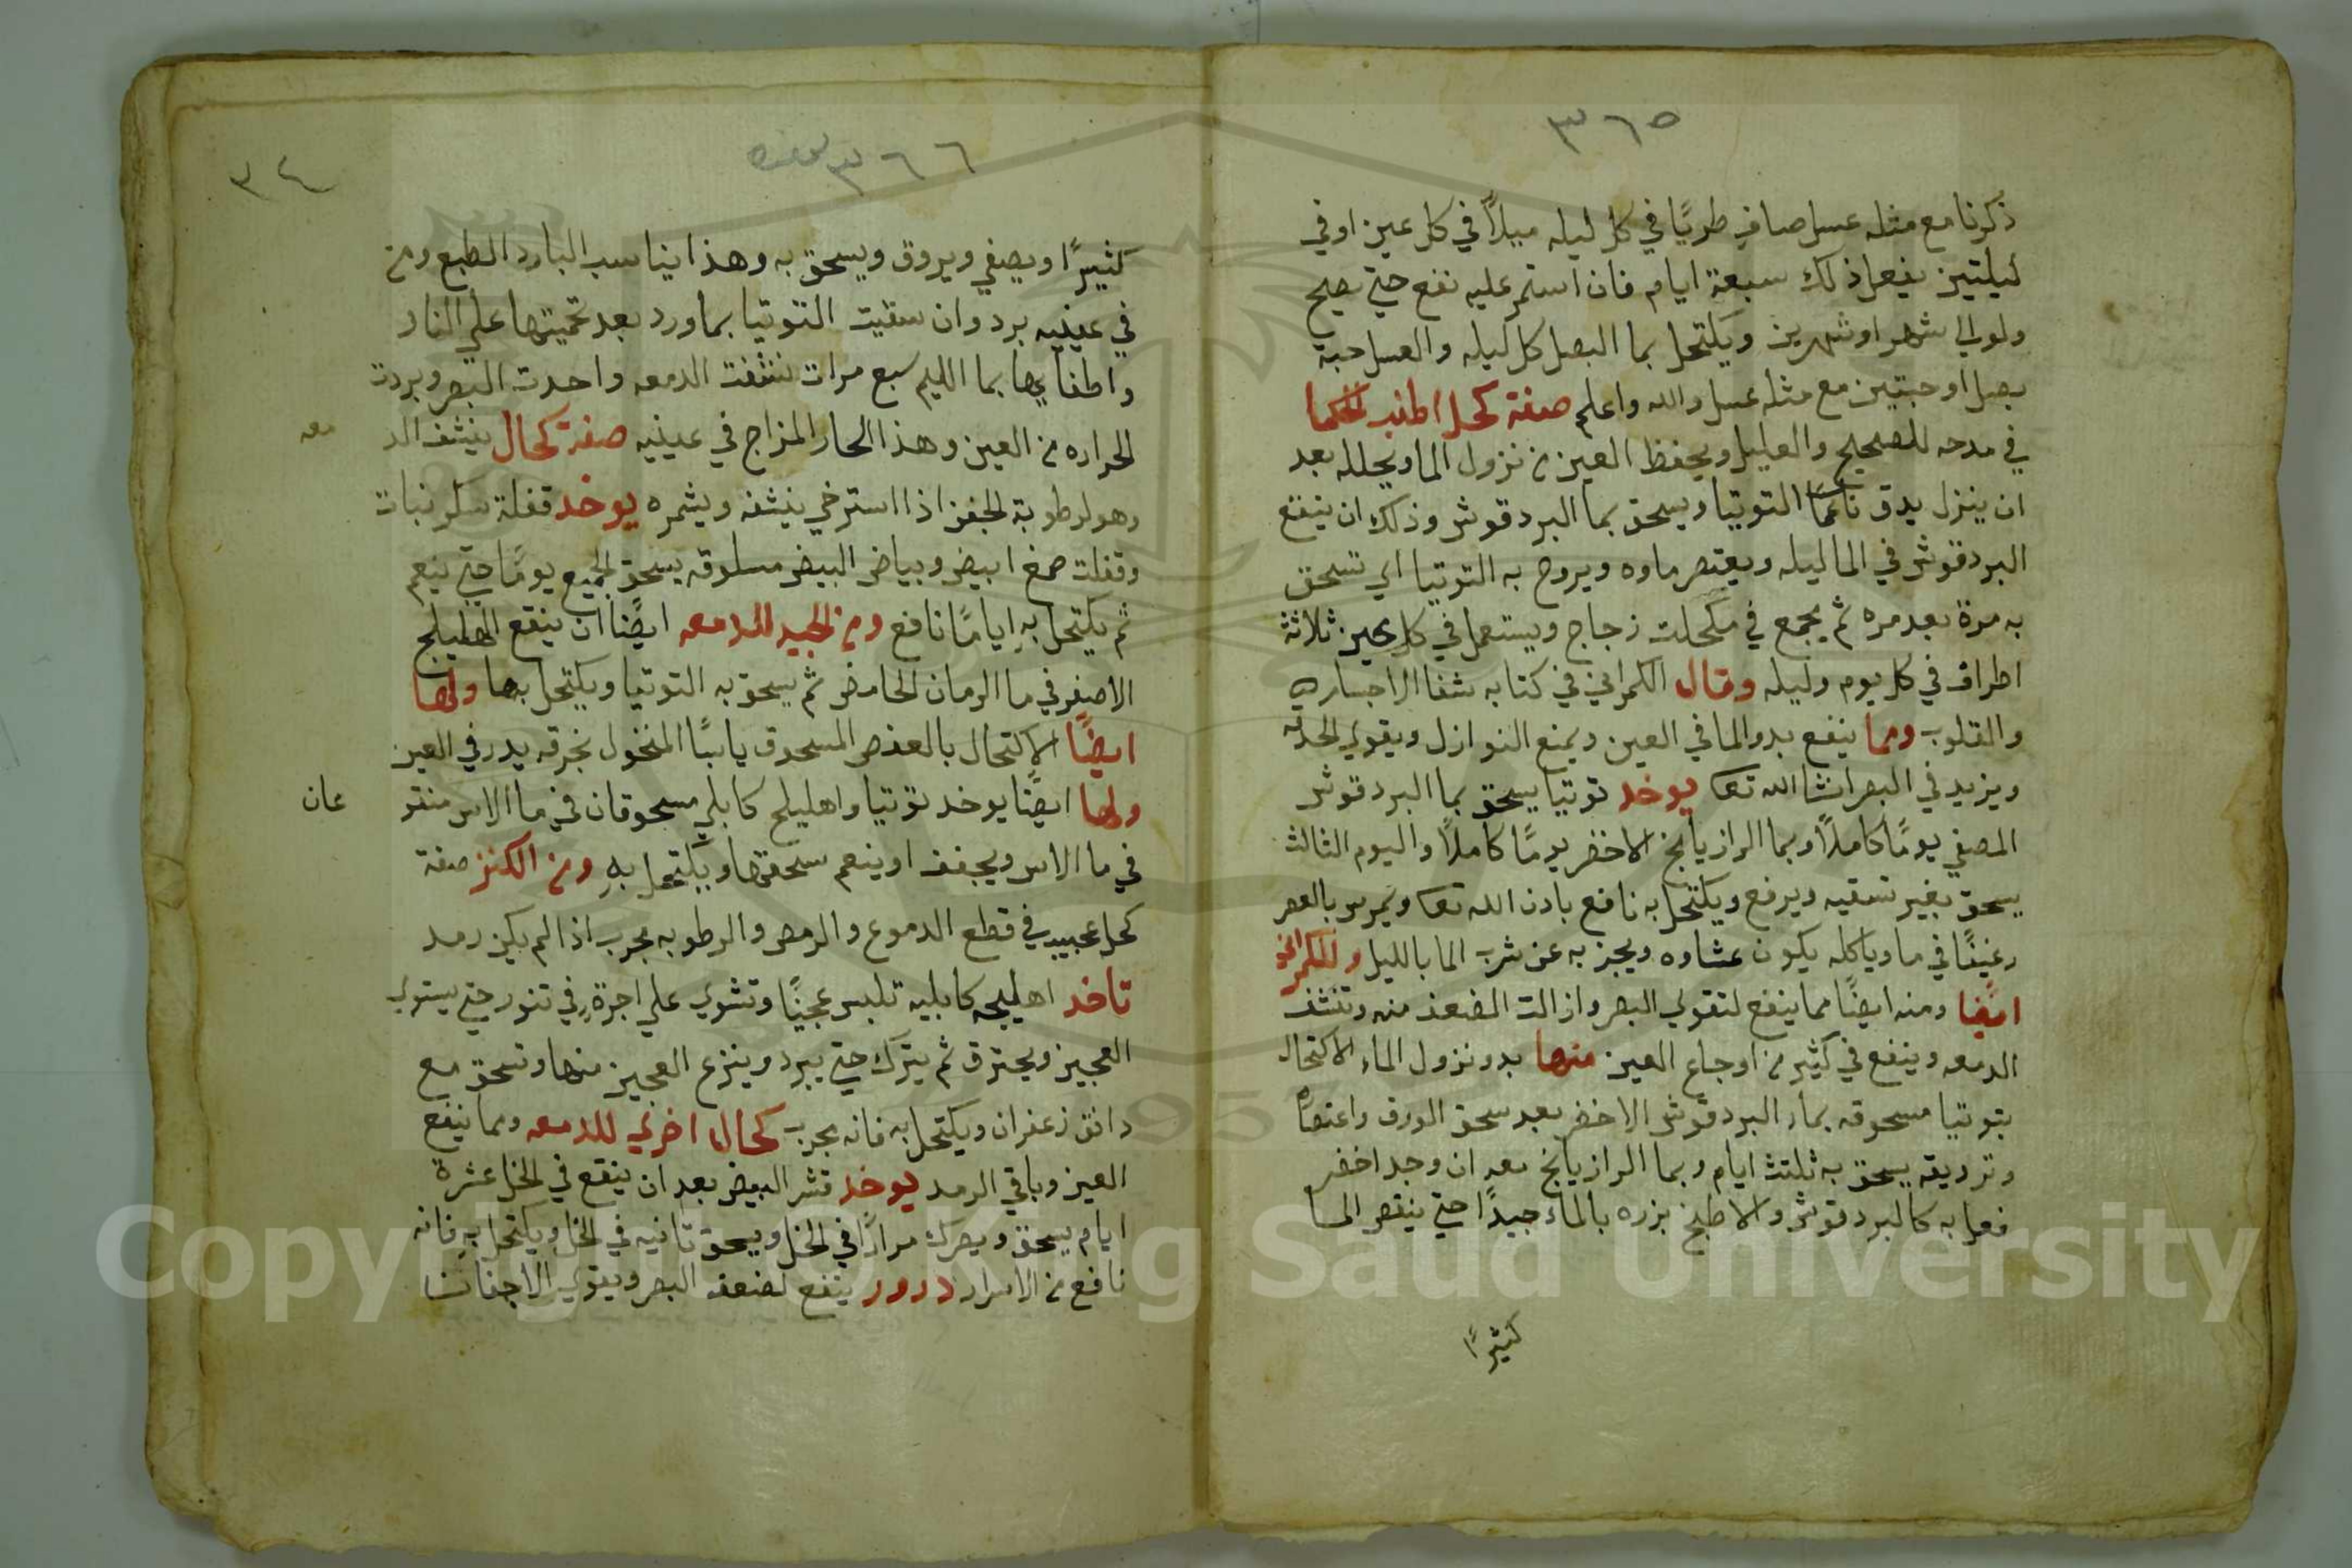 ٣٦٥
ذكرنا مع مثله عسل صافٍ طريًا في كل ليله ميلاً في كل عين اوفي
ليلتين يفعل ذلك سبعة ايام فان استمر عليه نفع حتي يصلح
ولو الي شهر او شهرين ويكتحل بما البصل كل ليله والعسل حبة
بصل او حبتين مع مثله عسل والله واعلم صفة كحل اطنب الحكما
في مدحه للصحيح والعليل ويحفظ العين من نزول الما ويحلله بعد
ان ينزل يدق ناعمًا التوتيا ويسحق بما البردقوش وذلك ان ينقع
البردقوش في الما ليله ويعتصر ماوه ويروح به التوتيا اي تسحق
به مرة بعد مره ثم يجمع في مكحلت زجاج ويستعمل في كل عين ثلاثة
اطراف في كل يوم وليله وقال الكمراني في كتابه شفا الاجسار
والقلوب ومما ينفع بدو الما في العين ويمنع النوازل ويقوي الحدقه
ويزيد في البصر انشا الله تعا يوخد توتيا يسحق بما البردقوش
المصفي يومًا كاملاً وبما الرازيانج الاخضر يومًا كاملاً واليوم الثالث
يسحق بغير تسقيه ويرفع ويكتحل به نافع باذن الله تعا ويمرس بالعصر
رغيفًا في ما وياكله يكون عشاوه ويجز به عن شرب الما بالليل وللكمراني
ايضًا ومنه ايضًا مما ينفع لتقوي البصر وازالت الضعف منه وتنشف
الدمعه وينفع في كثير من اوجاع العين منها بدو نزول الماء الاكتحال
بتوتيا مسحوقه بماء البردقوش الاخضر بعد سحق الورق واعتصاره
وترديقه يسحق به ثلثت ايام وبما الرازيانج معه ان وجد اخضر
فعل به كالبردقوش والا طبخ بزره بالماء جيدًا حتي ينقص الما
كثيرًا
٣٦٦
٣٤
كثيرًا ويصفي ويروق ويسحق به وهذا يناسب البارد الطبع ومن
في عينيه برد وان سقيت التوتيا بماورد بعد تحميتها علي النار
واطفايها بما الليم سبع مرات نشفت الدمعه واحدت البصر وبردت
الحراره من العين وهذا الحار المزاج في عينيه صفة كحال ينشف الد
معه
وهو لرطوبة الجفن اذا استرخي ينشفه ويشمره يوخد قفلة سكر نبات
وقفلت صمغ ابيض وبياض البيض مسلوقه يسحق الجميع يومًا حتي ينعم
ثم يكتحل به ايامًا نافع ومن الجيد للدمعه ايضًا ان ينقع الهليلج
الاصفر في ما الرمان الحامض ثم يسحق به التوتيا ويكتحل بها ولها
ايضًا الاكتحال بالعفص المسحوق يابسًا المنخول بخرقه يدر في العين
ولها ايضًا يوخد توتيا واهليلج كابلي مسحوقان في ما الاس منقو
عان
في ما الاس ويجفف او ينعم سحقها ويكتحل به ومن الكنز صفة
كحل عجيب في قطع الدموع والرمص والرطوبه مجرب اذا لم يكن رمد
تاخد اهليجه كابليه تلبس عجينًا وتشوي علي اجرةٍ في تنور حتي يستوي
العجين ويحترق ثم يترك حتي يبرد وينزع العجين منها وتسحق مع
دانق زعفران ويكتحل به فانه مجرب كحال اخري للدمعه ومما ينفع
العين وباقي الرمد يوخد قشر البيض بعد ان ينقع في الخل عشرة
ايام يسحق ويعرك مرارًا في الخل ويسحق ثانيه في الخل ويكتحل به فانه
نافع من الاسرار درور ينفع لضعف البصر ويقوي الاجفان
Copyright © King Saud University